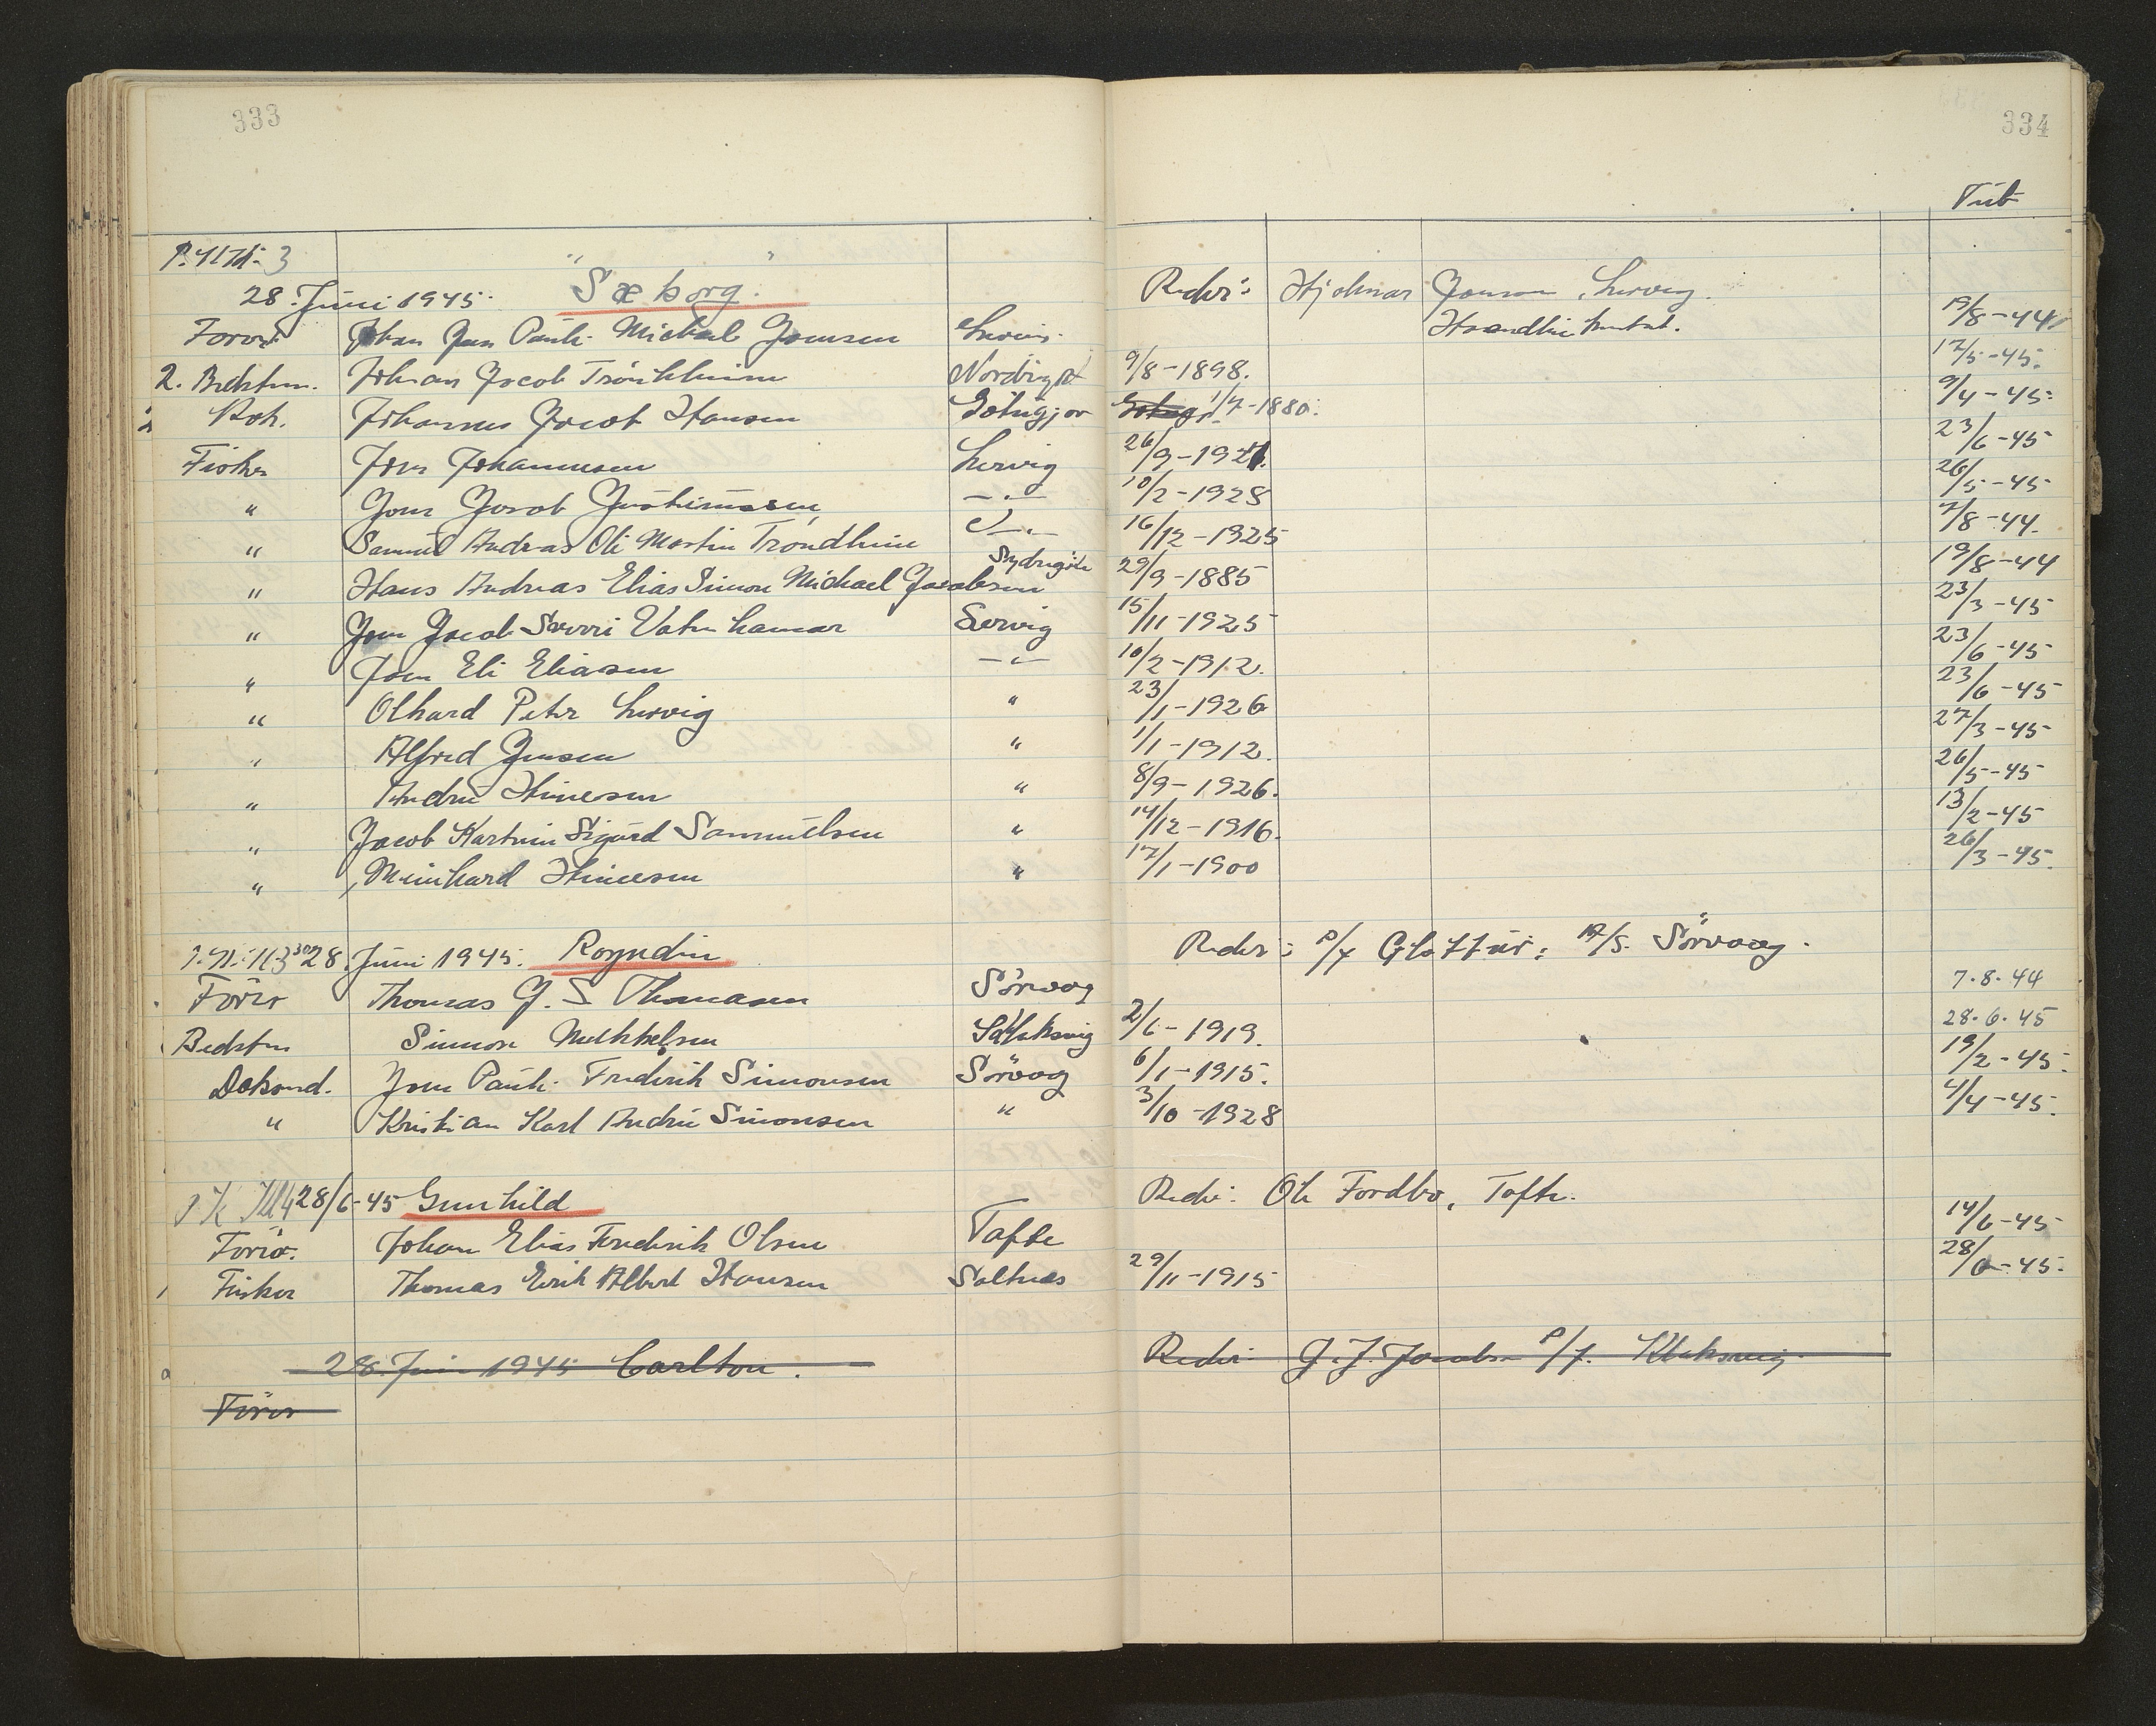 333
334
Tub
28. Juni 1945. "Sæborg." Reder: Hjalmar Joensen, Lervig.
Fører Johan Jan Pauli Michael Joensen Lervig 19/8-44
2. Bedstm. Johan Jacob Tróndheim Nordrigöt 9/8-1898. 17/5-45.
Kok. Johannes Jacob Hansen Götugjov 1/7-1880. 9/4-45.
Fisker Jens Johannesen Lervig 26/9-192 23/6-45
" Joen Jacob Justinussen -"- 10/2-1928 26/5-45
" Samuel Andreas Oli Martin Tróndheim -"- 16/12-1925 7/8-44.
" Hans Andreas Elias Simon Michael Jacobsen Sydrugöte 29/9-1885 19/8-44
" Joen Jacob Sverri Vatnhamar Lervig 15/11-1925 23/3-45
" Joen Eli Eliasen -"- 10/2-1912. 23/6-45
" Olhard Peter Lervig " 23/1-1926 23/6-45
" Alfred Jensen " 1/1-1912. 27/3-45
" Andrew Hinesen " 8/9-1926. 26/5-45
" Jacob Kartni Sigurd Samuelsen " 14/12-1916. 13/2-45
" Meinhard Hinesen " 17/1-1900 26/3-45.
28. Juni 1945. Royndin Reder: P/f Glottur: A/S. Sörvaag.
Förer Thomas J. S Thomasen Sörvaag 7.8.44
Bedstm Simon Mikkelsen Klaksvig 2/6-1919. 28.6.45
Doksmd. Joen Pauli Frederik Simonsen Sörvaag 6/1-1915. 19/2-45.
" Kristian Karl Andrew Simonsen " 3/10-1928 4/4-45.
28/6-45 Gunhild Reder: Ole Fordbo, Tofte.
Förer. Johan Elias Frederik Olsen Tofte 14/6-45
Fisker Thomas Eirik Albert Hansen Saltnes 29/11-1915 28/6-45.
28. Juni 1945 Carlton. Reder J. F. Jacobsen P/f. Klaksvig.
Förer